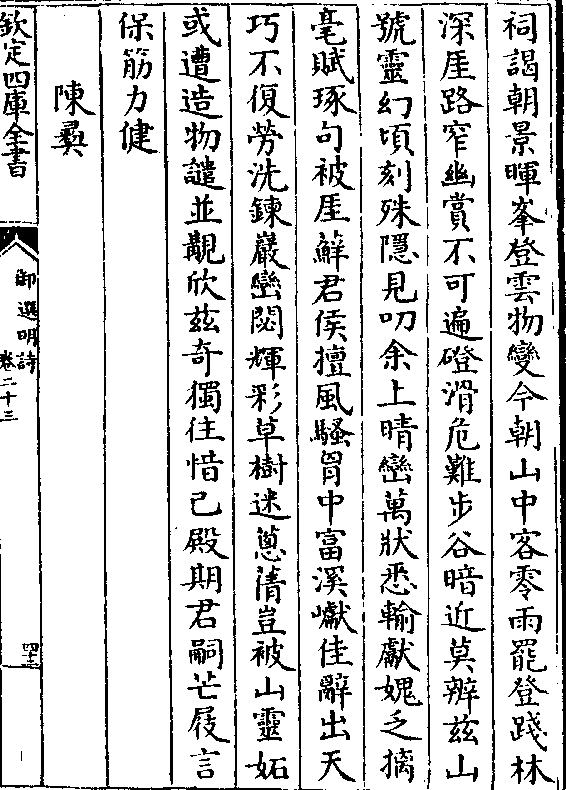 祠謁朝景暉峯登雲物變今朝山中客零雨罷登踐林
深厓路窄幽賞不可遍磴滑危難步谷暗近莫辨茲山
號靈幻頃刻殊隱見叨余上晴巒萬狀悉輸獻媿乏摛
毫賦琢句被厓蘚君侯擅風騷胷中富溪巘佳辭出天
巧不復勞洗鍊巖巒閟輝彩草樹迷蔥蒨豈被山靈妬
或遭造物譴並覩欣茲奇獨往惜已殿期君嗣芒屐言
保筋力健
陳彝
欽定四庫全書
御選明詩
卷二十三